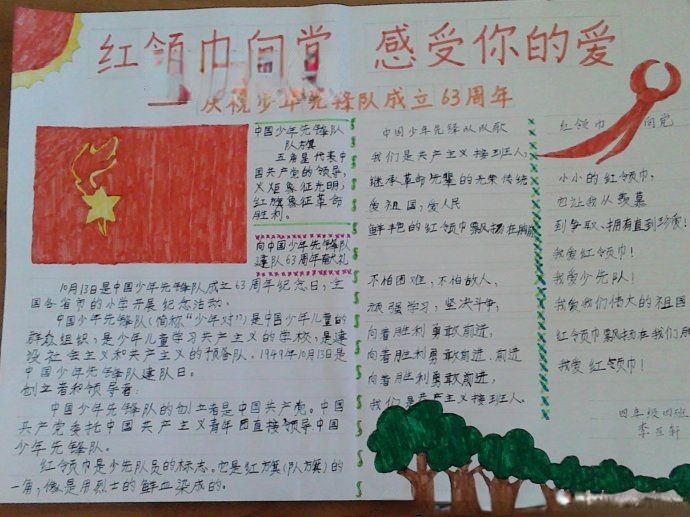 红领巾向党 感受你的爱
——庆祝少年先锋队成立63周年
中国少年先锋队
队旗
五角星代表中
国共产党的领导,
火炬象征光明,
红旗象征革命
胜利。
向中国少年先锋队
建队63周年献礼
10月13日是中国少年先锋队成立63周年纪念日,全
国各省市的小学开展纪念活动。
中国少年先锋队(简称"少年对")是中国少年儿童的
群众组织,是少年儿童学习共产主义的学校,是建
设社会主义和共产主义的预备队。1949年10月13日是
中国少年先锋队建队日。
创立者和领导者:
中国少年先锋队的创立者是中国共产党。中国
共产党委托中国共产主义青年团直接领导中国
少年先锋队。
红领巾是少先队员的标志。它是红旗(队旗)的
一角,像是用烈士的鲜血染成的。
中国少年先锋队队歌
我们是共产主义接班人,
继承革命先辈的光荣传统
爱祖国,爱人民
鲜艳的红领巾飘扬在胸前
不怕困难,不怕敌人,
顽强学习,坚决斗争,
向着胜利勇敢前进,
向着胜利勇敢前进,前进
向着胜利勇敢前进,
我们是共产主义接班人.
红领巾 向党
小小的红领巾,
也让我羡慕
到争取、拥有直到珍爱!
我爱红领巾!
我爱少先队!
我爱我们伟大的祖国
红领巾飘扬在我们胸
我爱红领巾!
四年级四班